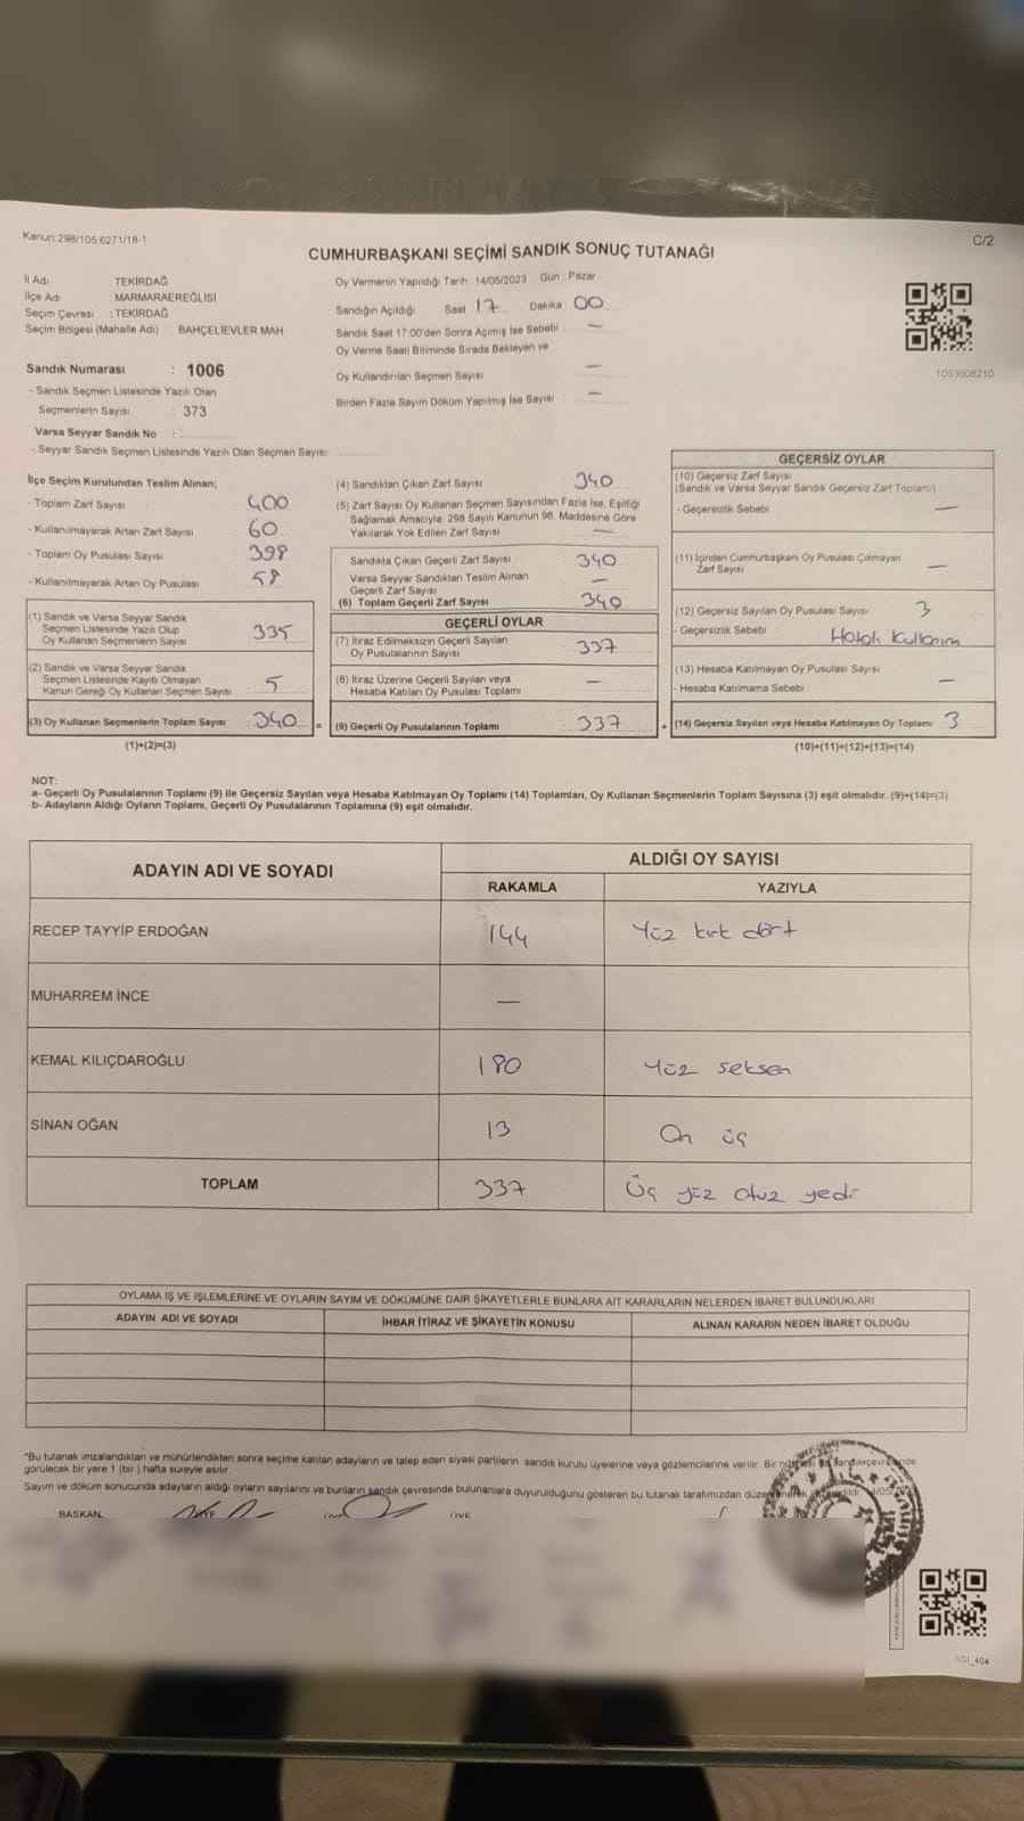 Kanun:298/105,6271/18-1
C/2
CUMHURBAŞKANI SEÇİMİ SANDIK SONUÇ TUTANAĞI
İl Adı : TEKİRDAĞ
İlçe Adı : MARMARAEREĞLİSİ
Seçim Çevresi : TEKİRDAĞ
Seçim Bölgesi (Mahalle Adı) BAHÇELİEVLER MAH
Sandık Numarası : 1006
- Sandık Seçmen Listesinde Yazılı Olan
Seçmenlerin Sayısı : 373
Varsa Seyyar Sandık No :
- Seyyar Sandık Seçmen Listesinde Yazılı Olan Seçmen Sayısı
Oy Vermenin Yapıldığı Tarih: 14/05/2023 Gün : Pazar
Sandığın Açıldığı Saat 17 Dakika 00
Sandık Saat 17:00'den Sonra Açılmış İse Sebebi —
Oy Verme Saati Bitiminde Sırada Bekleyen ve
Oy Kullandırılan Seçmen Sayısı —
Birden Fazla Sayım Döküm Yapılmış İse Sayısı —
1093608210
İlçe Seçim Kurulundan Teslim Alınan;
- Toplam Zarf Sayısı 400
- Kullanılmayarak Artan Zarf Sayısı 60
- Toplam Oy Pusulası Sayısı 398
- Kullanılmayarak Artan Oy Pusulası 58
(1) Sandık ve Varsa Seyyar Sandık
Seçmen Listesinde Yazılı Olup
Oy Kullanan Seçmenlerin Sayısı 335
(2) Sandık ve Varsa Seyyar Sandık
Seçmen Listesinde Kayıtlı Olmayan
Kanun Gereği Oy Kullanan Seçmen Sayısı 5
(3) Oy Kullanan Seçmenlerin Toplam Sayısı 340 =
(1)+(2)=(3)
(4) Sandıktan Çıkan Zarf Sayısı 340
(5) Zarf Sayısı Oy Kullanan Seçmen Sayısından Fazla İse, Eşitliği
Sağlamak Amacıyla 298 Sayılı Kanunun 98. Maddesine Göre
Yakılarak Yok Edilen Zarf Sayısı —
Sandıkta Çıkan Geçerli Zarf Sayısı 340
Varsa Seyyar Sandıktan Teslim Alınan
Geçerli Zarf Sayısı —
(6) Toplam Geçerli Zarf Sayısı 340
GEÇERLİ OYLAR
(7) İtiraz Edilmeksizin Geçerli Sayılan
Oy Pusulalarının Sayısı 337
(8) İtiraz Üzerine Geçerli Sayılan veya
Hesaba Katılan Oy Pusulası Toplamı —
(9) Geçerli Oy Pusulalarının Toplamı 337 +
GEÇERSİZ OYLAR
(10) Geçersiz Zarf Sayısı
(Sandık ve Varsa Seyyar Sandık Geçersiz Zarf Toplamı)
- Geçersizlik Sebebi —
(11) İçinden Cumhurbaşkanı Oy Pusulası Çıkmayan
Zarf Sayısı —
(12) Geçersiz Sayılan Oy Pusulası Sayısı 3
- Geçersizlik Sebebi Hatalı Kullanım
(13) Hesaba Katılmayan Oy Pusulası Sayısı —
- Hesaba Katılmama Sebebi
(14) Geçersiz Sayılan veya Hesaba Katılmayan Oy Toplamı 3
(10)+(11)+(12)+(13)=(14)
NOT:
a- Geçerli Oy Pusulalarının Toplamı (9) ile Geçersiz Sayılan veya Hesaba Katılmayan Oy Toplamı (14) Toplamları, Oy Kullanan Seçmenlerin Toplam Sayısına (3) eşit olmalıdır. (9)+(14)=(3)
b- Adayların Aldığı Oyların Toplamı, Geçerli Oy Pusulalarının Toplamına (9) eşit olmalıdır.
ADAYIN ADI VE SOYADI
ALDIĞI OY SAYISI
RAKAMLA YAZIYLA
RECEP TAYYİP ERDOĞAN 144 Yüz kırk dört
MUHARREM İNCE —
KEMAL KILIÇDAROĞLU 180 Yüz seksen
SİNAN OĞAN 13 On üç
TOPLAM 337 Üç yüz otuz yedi
OYLAMA İŞ VE İŞLEMLERİNE VE OYLARIN SAYIM VE DÖKÜMÜNE DAİR ŞİKAYETLERLE BUNLARA AİT KARARLARIN NELERDEN İBARET BULUNDUKLARI
ADAYIN ADI VE SOYADI İHBAR İTİRAZ VE ŞİKAYETİN KONUSU ALINAN KARARIN NEDEN İBARET OLDUĞU
*Bu tutanak imzalandıktan ve mühürlendikten sonra seçime katılan adayların ve talep eden siyasi partilerin sandık kurulu üyelerine veya gözlemcilerine verilir. Bir
görülecek bir yere 1 (bir) hafta süreyle asılır.
Sayım ve döküm sonucunda adayların aldığı oyların sayılarını ve bunların sandık çevresinde bulunanlara duyurulduğunu gösteren bu tutanak tarafımızdan
BAŞKAN